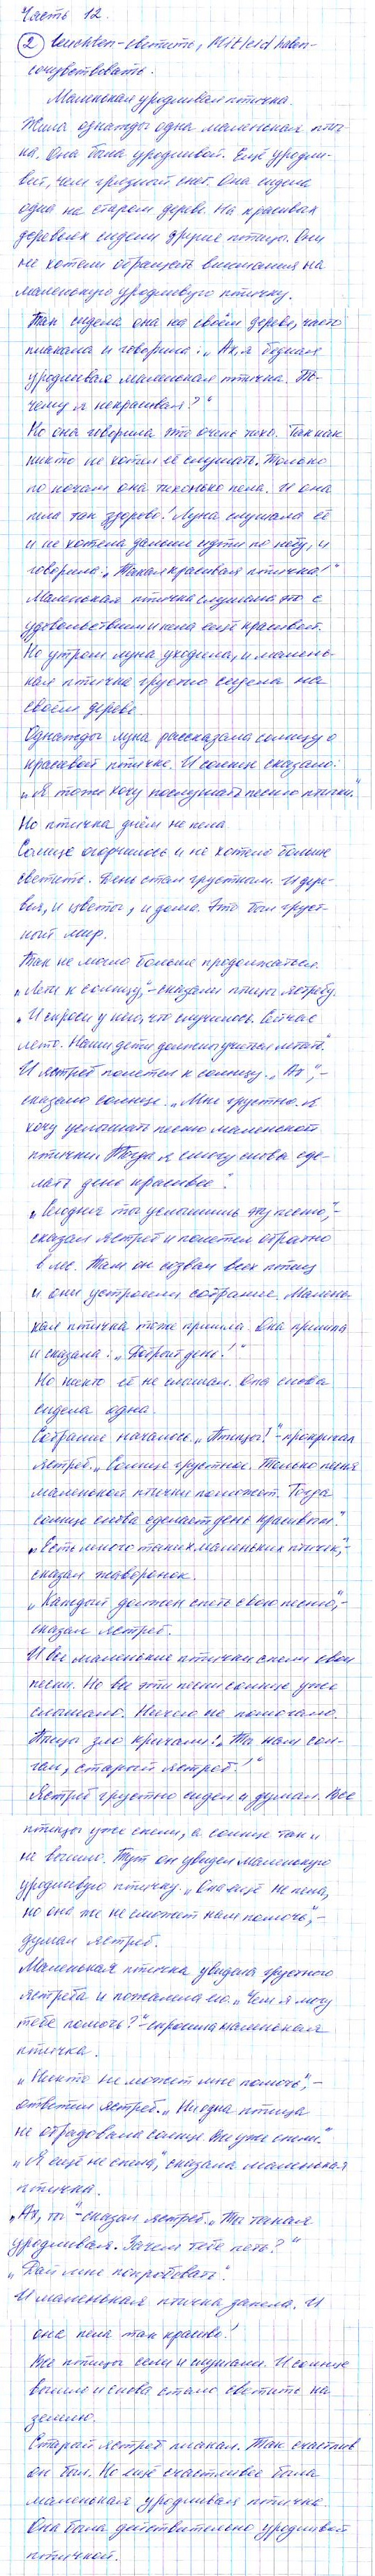 Часть 12.
② leuchten - светить, Mitleid haben -
сочувствовать.
Маленькая уродливая птичка.
Жила однажды одна маленькая пти-
ца. Она была уродливой. Ещё уродли-
вей, чем грязный снег. Она сидела
одна на старом дереве. На красивых
деревьях сидели другие птицы. Они
не хотели обращать внимания на
маленькую уродливую птичку.
Так сидела она на своём дереве, часто
плакала и говорила: „Ах, я бедная
уродливая маленькая птичка. По-
чему я некрасивая?“
Но она говорила это очень тихо. Так как
никто не хотел её слушать. Только
по ночам она тихонько пела. И она
пела так здорово! Луна слушала её
и не хотела дальше идти по небу, и
говорила: „Такая красивая птичка!“
Маленькая птичка слушала это с
удовольствием и пела ещё красивей.
Но утром луна уходила, и малень-
кая птичка грустно сидела на
своём дереве.
Однажды луна рассказала солнцу о
красивой птичке. И солнце сказало:
„Я тоже хочу послушать песню птички.“
Но птичка днём не пела.
Солнце огорчилось и не хотело больше
светить. День стал грустным. И дере-
вья, и цветы, и дома. Это был груст-
ный мир.
Так не могло больше продолжаться.
„Лети к солнцу,“ - сказали птицы ястребу.
„И спроси у него, что случилось. Сейчас
лето. Наши дети должны учиться летать“.
И ястреб полетел к солнцу. „Ах“, -
сказало солнце. „Мне грустно. Я
хочу услышать песню маленькой
птички. Тогда я смогу снова сде-
лать день красивее“.
„Сегодня ты услышишь эту песню“, -
сказал ястреб и полетел обратно
в лес. Там он созвал всех птиц
и они устроили собрание. Малень-
кая птичка тоже пришла. Она пришла
и сказала: „Добрый день!“
Но никто её не слышал. Она снова
сидела одна.
Собрание началось. „Птицы!“ - прокричал
ястреб. „Солнце грустное. Только песня
маленькой птички поможет. Тогда
солнце снова сделает день красивым.“
„Есть много таких маленьких птичек“, -
сказал жаворонок.
„Каждый должен спеть свою песню“, -
сказал ястреб.
И все маленькие птички спели свои
песни. Но все эти песни солнце уже
слышало. Ничего не помогало.
Птицы зло кричали: „Ты нам сол-
гал, старый ястреб!“
Ястреб грустно сидел и думал. Все
птицы уже спели, а солнце так и
не вышло. Тут он увидел маленькую
уродливую птичку. „Она ещё не пела,
но она же не сможет нам помочь“, -
думал ястреб.
Маленькая птичка увидела грустного
ястреба и пожалела его. „Чем я могу
тебе помочь?“ - спросила маленькая
птичка.
„Никто не может мне помочь“, -
ответил ястреб. „Ни одна птица
не обрадовала солнце. Все уже спели.“
„Я ещё не спела,“ сказала маленькая
птичка.
„Ах, ты“ - сказал ястреб. „Ты такая
уродливая. Зачем тебе петь?“
„Дай мне попробовать“.
И маленькая птичка запела. И
она пела так красиво!
Все птицы сели и слушали. И солнце
вышло и снова стало светить на
землю.
Старый ястреб плакал. Так счастлив
он был. Но ещё счастливее была
маленькая уродливая птичка.
Она была действительно уродливой
птичкой.